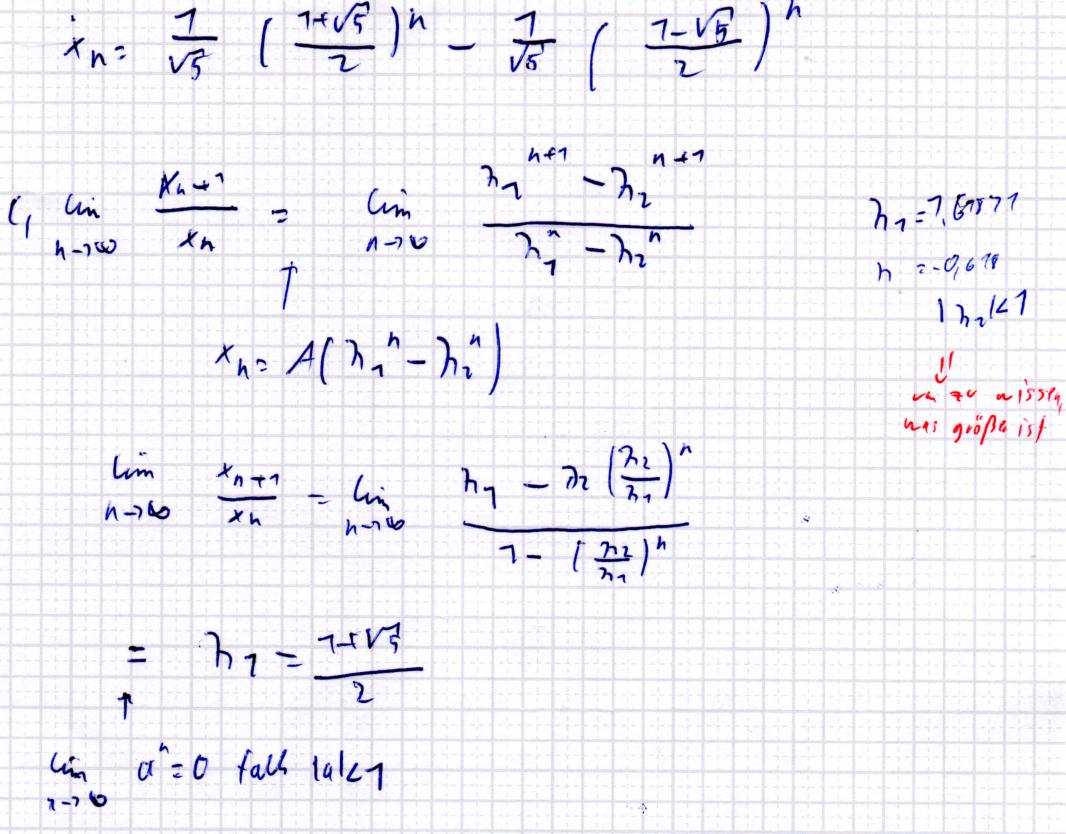 xₙ = 1/√5 ( (1+√5)/2 )ⁿ − 1/√5 ( (1−√5)/2 )ⁿ
c) lim n→∞ xₙ₊₁/xₙ = lim n→∞ (λ₁ⁿ⁺¹ − λ₂ⁿ⁺¹)/(λ₁ⁿ − λ₂ⁿ)
↑
xₙ = A(λ₁ⁿ − λ₂ⁿ)
λ₁ =
λ = -0,618
|λ₂|<1
⇓
um zu wissen,
was größer ist
lim n→∞ xₙ₊₁/xₙ = lim n→∞ (λ₁ − λ₂ (λ₂/λ₁)ⁿ)/(1 − (λ₂/λ₁)ⁿ)
= λ₁ = (1+√5)/2
↑
lim n→∞ aⁿ = 0 falls |a|<1